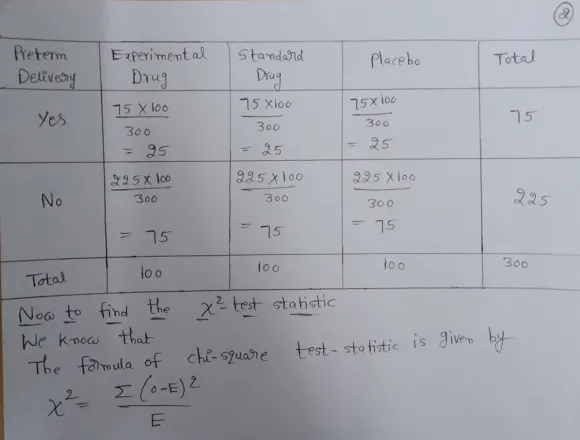 2
Preterm Delivery | Experimental Drug | Standard Drug | Placebo | Total
Yes | 75 x 100 / 300 = 25 | 75 x 100 / 300 = 25 | 75 x 100 / 300 = 25 | 75
No | 225 x 100 / 300 = 75 | 225 x 100 / 300 = 75 | 225 x 100 / 300 = 75 | 225
Total | 100 | 100 | 100 | 300
Now to find the χ²-test statistic
We know that
The formula of chi-square test-statistic is given by
χ² = Σ(O-E)² / E